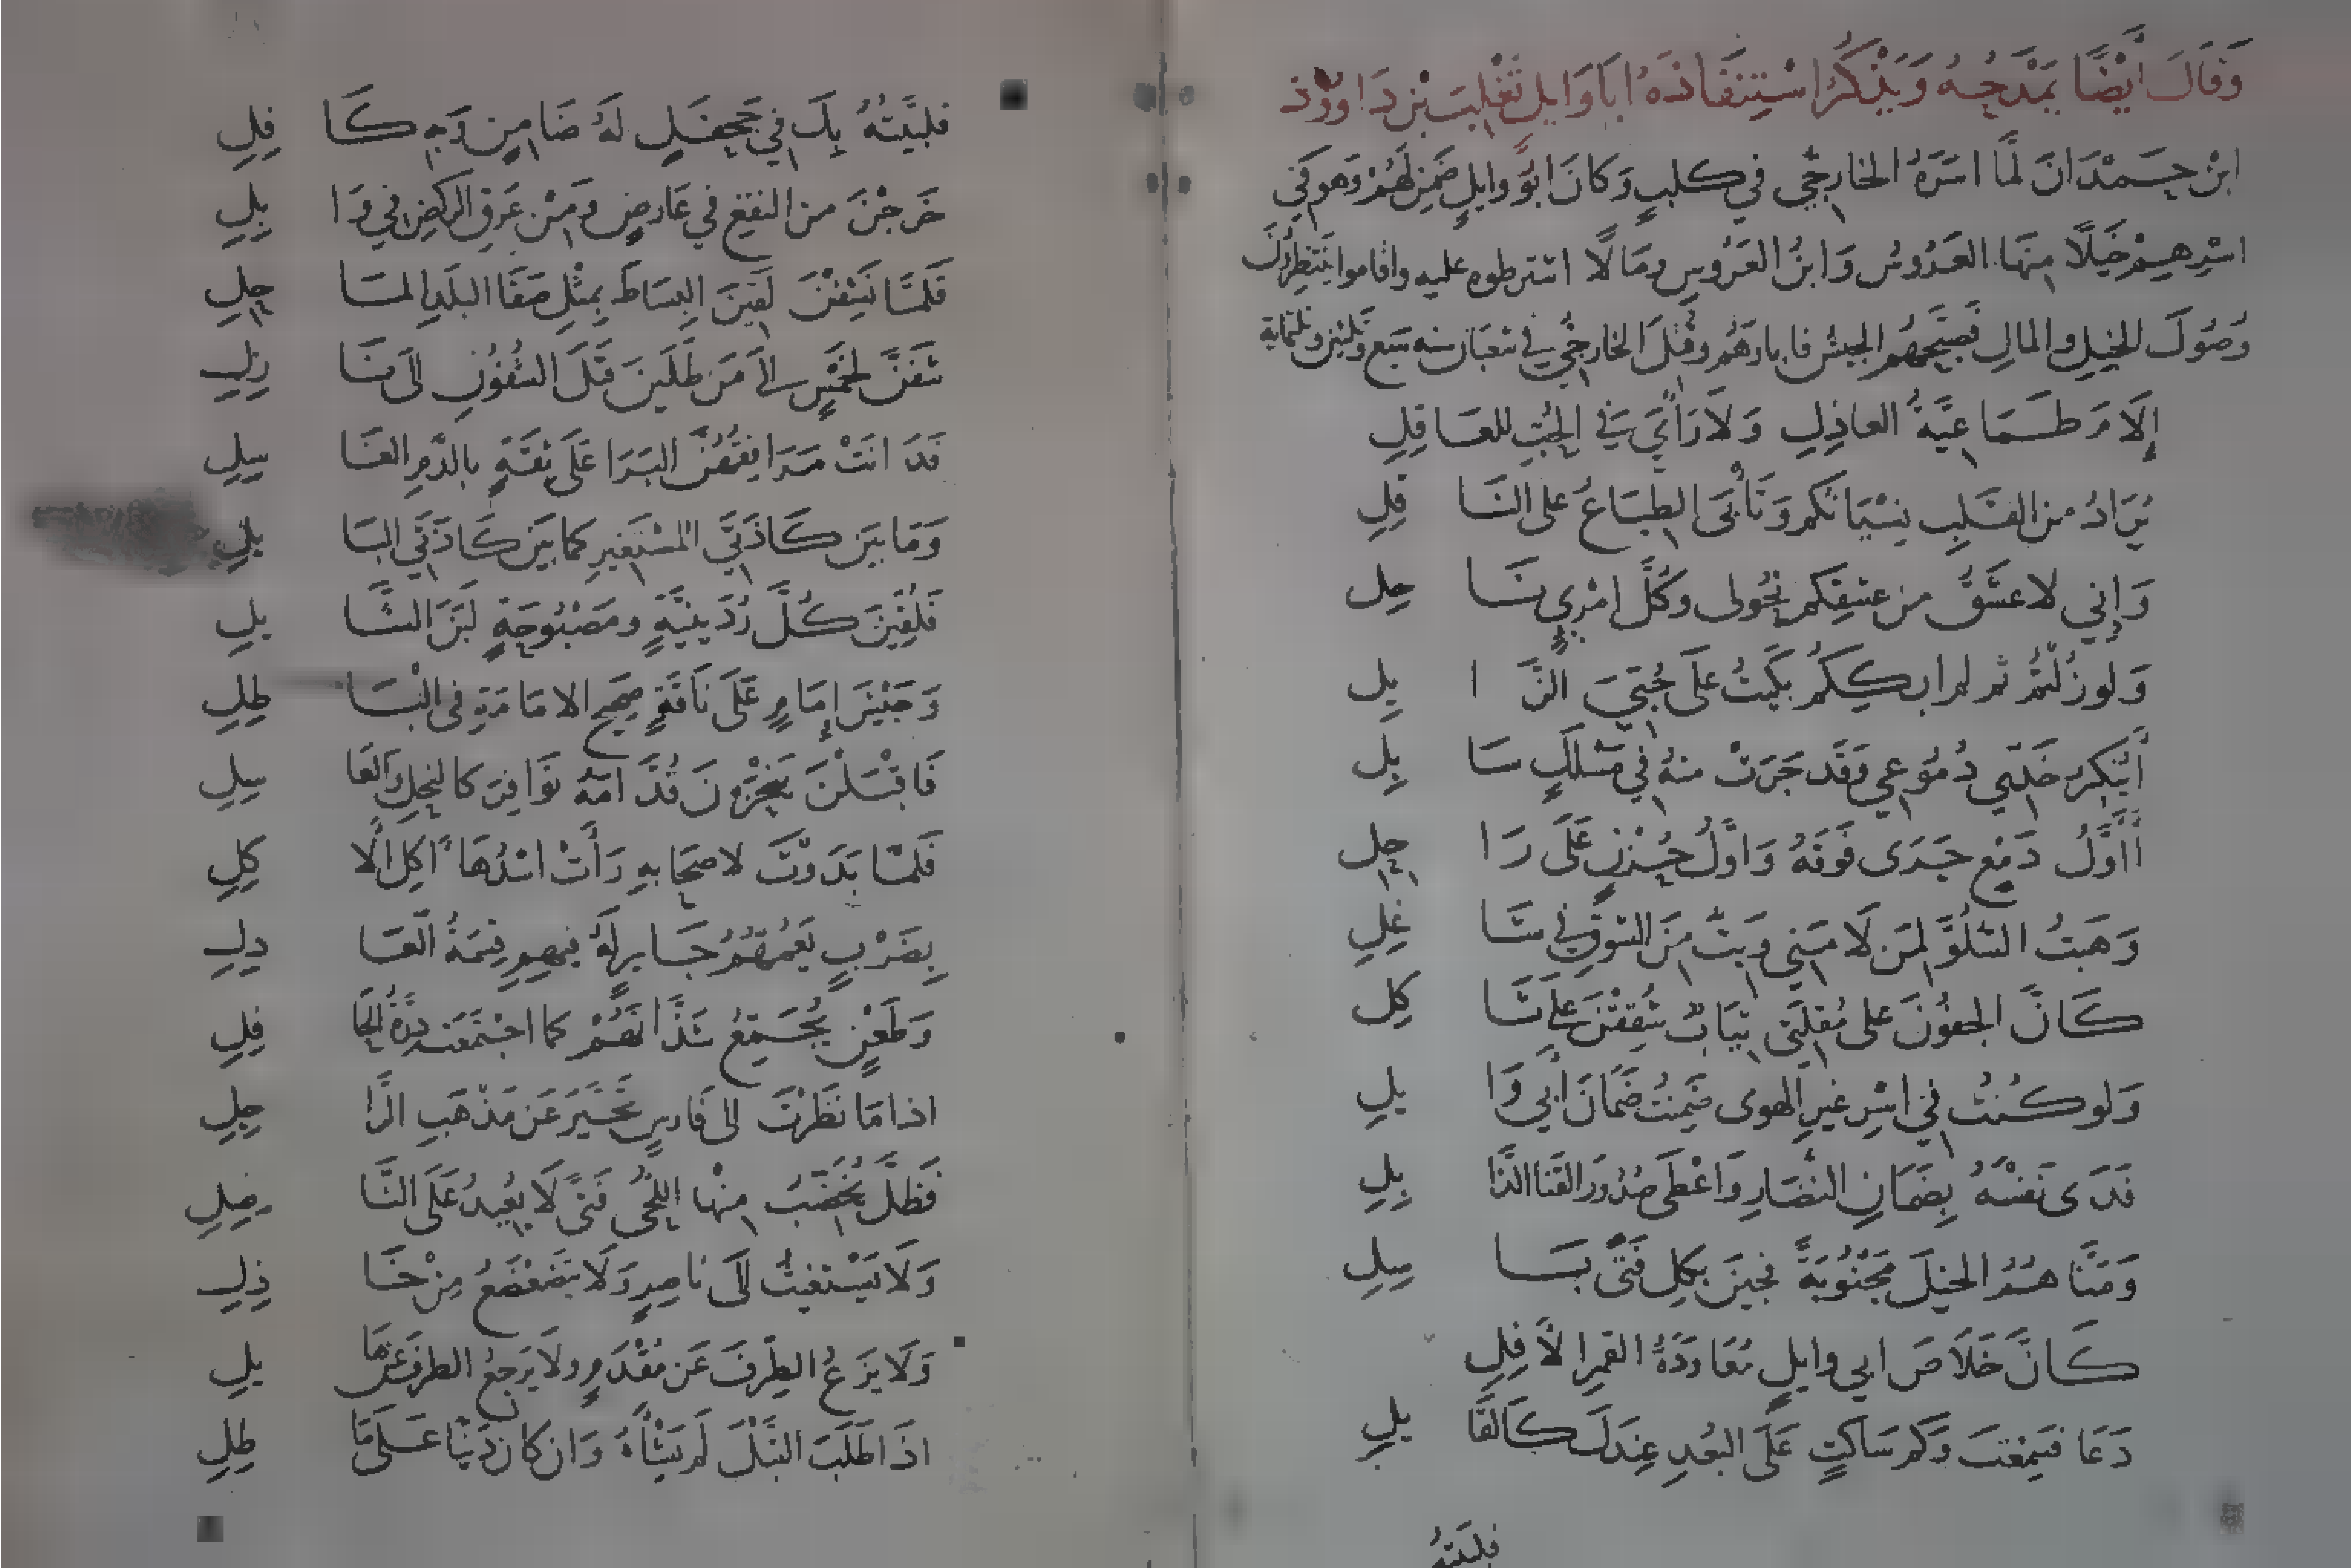 وَقَالَ أَيْضًا يَمْدَحُهُ وَيَذْكُرُ اسْتِنقَاذَهُ ابَا وَايِلٍ تَغْلِبَ بْنَ دَاوُدَ
ابْنِ حَمْدَانَ لَمَّا اسَرَهُ الخارجيُّ في كلبٍ وَكَانَ ابُو وايلٍ ضَمِنَ لَهُمْ وَهو في
اسْرِهِمْ خَيْلًا مِنهَا العَرُوسُ وَابنُ العَرُوسِ ومَالًا اشترطوه عليه واقاموا يَنتَظِرُونَ
وُصُولَ الخيلِ والمالِ فصَبَّحَهُم الجيشُ فابادَهُم وقُتِلَ الخارجيُّ في شعبان سنه سَبع وثلثين وثلثماية
إِلَامَ طَمَاعِيَةُ العاذِلِ وَلَا رَأْيَ في الحُبِّ للعَاقِلِ
يُرَادُ من القَلبِ نِسْيَانُكُم وَتَأْبَى الطِبَاعُ على النَا قِلِ
وَإِنِي لاعشَقُ من عشقِكم نحُولى وكُلَّ امْرِيٍ نَا حِلِ
وَلو زُلتُمُ ثم لم ابكِكُمُ بَكَيتُ عَلَى حُبِّيَ الزَّا يِلِ
أَيُنكِرُ خَدّي دُمُوعي وقَد جَرَتْ منهُ في مَسْلَكٍ سَا بِلِ
أَأَوَّلُ دَمْعٍ جَرَى فَوقَهُ وَاوَّلُ حُزنٍ عَلَى رَا حِلِ
وَهَبتُ السُّلُوَّ لمَن لَامَني وَبِتُّ مِنَ الشوقِ في شَا غِلِ
كَانَّ الجفُونَ على مُقلَتي ثِيَابٌ شُقِقْنَ عَلَى ثَا كِلِ
وَلو كُنتُ في اسْرِ غيرِ الهوى ضَمِنتُ ضَمَانَ أبي وَا يلِ
فَدَى نَفسَهُ بِضَمَانِ النضَارِ وَاعْطَى صُدُورَ القَنا الذَا بِلِ
وَمَنَّاهُمُ الخيلَ مَجْنُوبَةً فجينَ بكلِ فَتًى بَا سِلِ
كَانَّ خَلَاصَ ابي وايلٍ مُعَاوَدَةُ القمرِ الآفِلِ
دَعَا فسَمِعْتَ وَكم سَاكتٍ عَلَى البُعدِ عِندَكَ كَالقَا يلِ
فلبَّيتَهُ
فلبَّيتَهُ بِكَ في جَحفَلٍ لَهُ ضَامِنٍ وَبِهِ كَا فِلِ
خَرَجْنَ من النقعِ في عَارضٍ ومِنْ عَرَقِ الرّكضِ في وَا بِلِ
فَلمَّا نَشِفْنَ لَقينَ السِيَاطَ بِمثْلِ صَفَا البلَدِ المَا حِلِ
شَفَنَّ لخمْسٍ الى مَن طَلَبنَ قَبلَ الشُفُونِ الى نَا زِلِ
فَدَانَتْ مَرَافِقُهُنَّ البَرَا عَلَى ثِقَةٍ بالدَّمِ الغَا سِلِ
وَمَا بيَن كَاذَتَي المُسْتَغيرِ كما بيَن كَاذَتَي البَا يلِ
فَلُقِينَ كُلَّ رُدَينِيَّةٍ ومَصْبُوحَةٍ لَبَنَ الشَّا يلِ
وَجَيْشَ إمَامٍ عَلَى نَاقَةٍ صحيحِ الامَامَةِ في البَا طِلِ
فَاقْبَلْنَ يَنحَزْنَ قُدَّامَهُ نَوَافِرَ كالنحلِ وَالعَا سِلِ
فَلمَّا بَدَوْتَ لاصحَابِهِ رَأَتْ اسْدُهَا آكِلَ الآ كِلِ
بِضَرْبٍ يَعُمُّهُمُ جَايرٍ لَهُ فيهِمِ قِسمَةُ العَا دِلِ
وَطَعْنٍ يُجَمِّعُ شذّانَهُمْ كما اجْتَمعَت دِرّةُ الحَا فِلِ
اذا مَا نَظَرْتَ الى فَارسٍ تَحَيَّرَ عَن مَذْهَبِ الرَّا جِلِ
فَظلَّ يُخَضّبُ مِنْها اللِّحَى فَتىً لَا يُعِيدُ عَلَى النَّا صِلِ
وَلَا يَسْتَغيثُ الَى نَاصِرٍ وَلَا يتَضَعْضَعُ مِنْ خَا ذِلِ
وَلَا يَزَعُ الطِرْفَ عَن مُقْدَمٍ ولَا يَرجعُ الطرْفَ عَن هَا يلِ
اذَا طَلَبَ التَبْلَ لَم يَشْأَهُ وَان كانَ دَيْنًا عَلَى مَا طِلِ